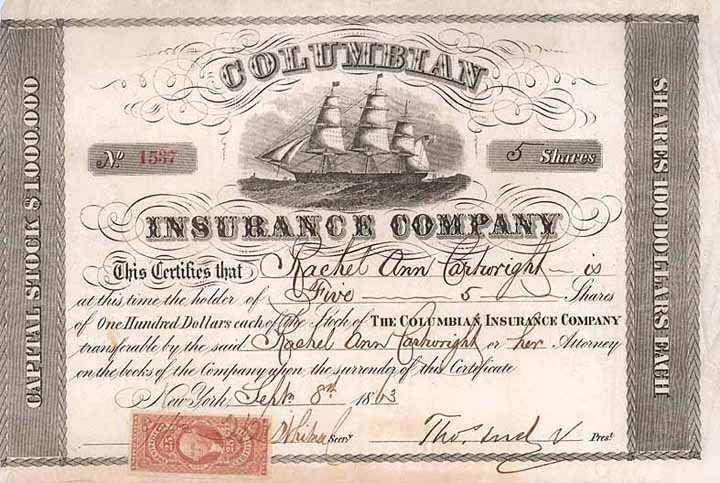 COLUMBIAN
CAPITAL STOCK $1,000,000
SHARES 100 DOLLARS EACH
No. 1537
5 Shares
INSURANCE COMPANY
This Certifies that Rachel Ann Cartwright is
at this time the holder of Five 5 Shares
of One Hundred Dollars each of the Stock of THE COLUMBIAN INSURANCE COMPANY
transferable by the said Rachel Ann Cartwright or her Attorney
on the books of the Company upon the surrender of this Certificate
New York, Sept 8th 1863
Secry
Thos. Prest.
25